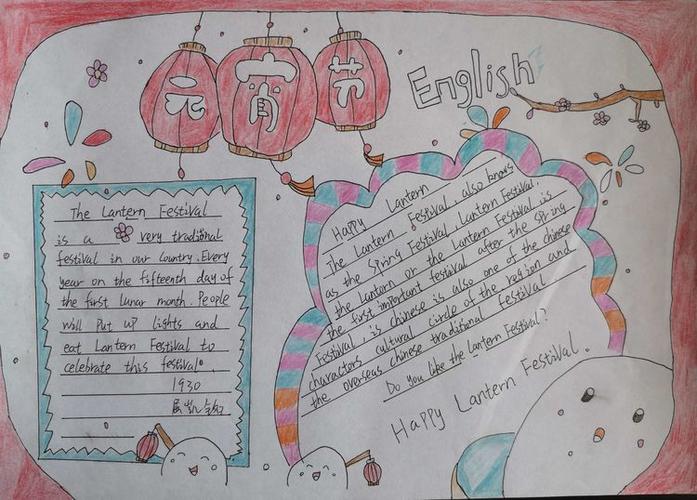 元宵节
English
The Lantern Festival
is a very traditional
festival in our country. Every
year on the fifteenth day of
the first lunar month. People
will Put up lights and
eat Lantern Festival to
celebrate this festival.
1930
Happy Lantern
The Lantern Festival, also knows
as the Spring Festival Lantern Festival.
the Lantorn or the Lantern Festival is
the first important festival after the Spring
Festival, is chinese is also one of the chinese
characters cultural circle of the region and
the overseas chinese traditional festival
Do you like the Lantern Festival?
HAPPY Lantern Festival.